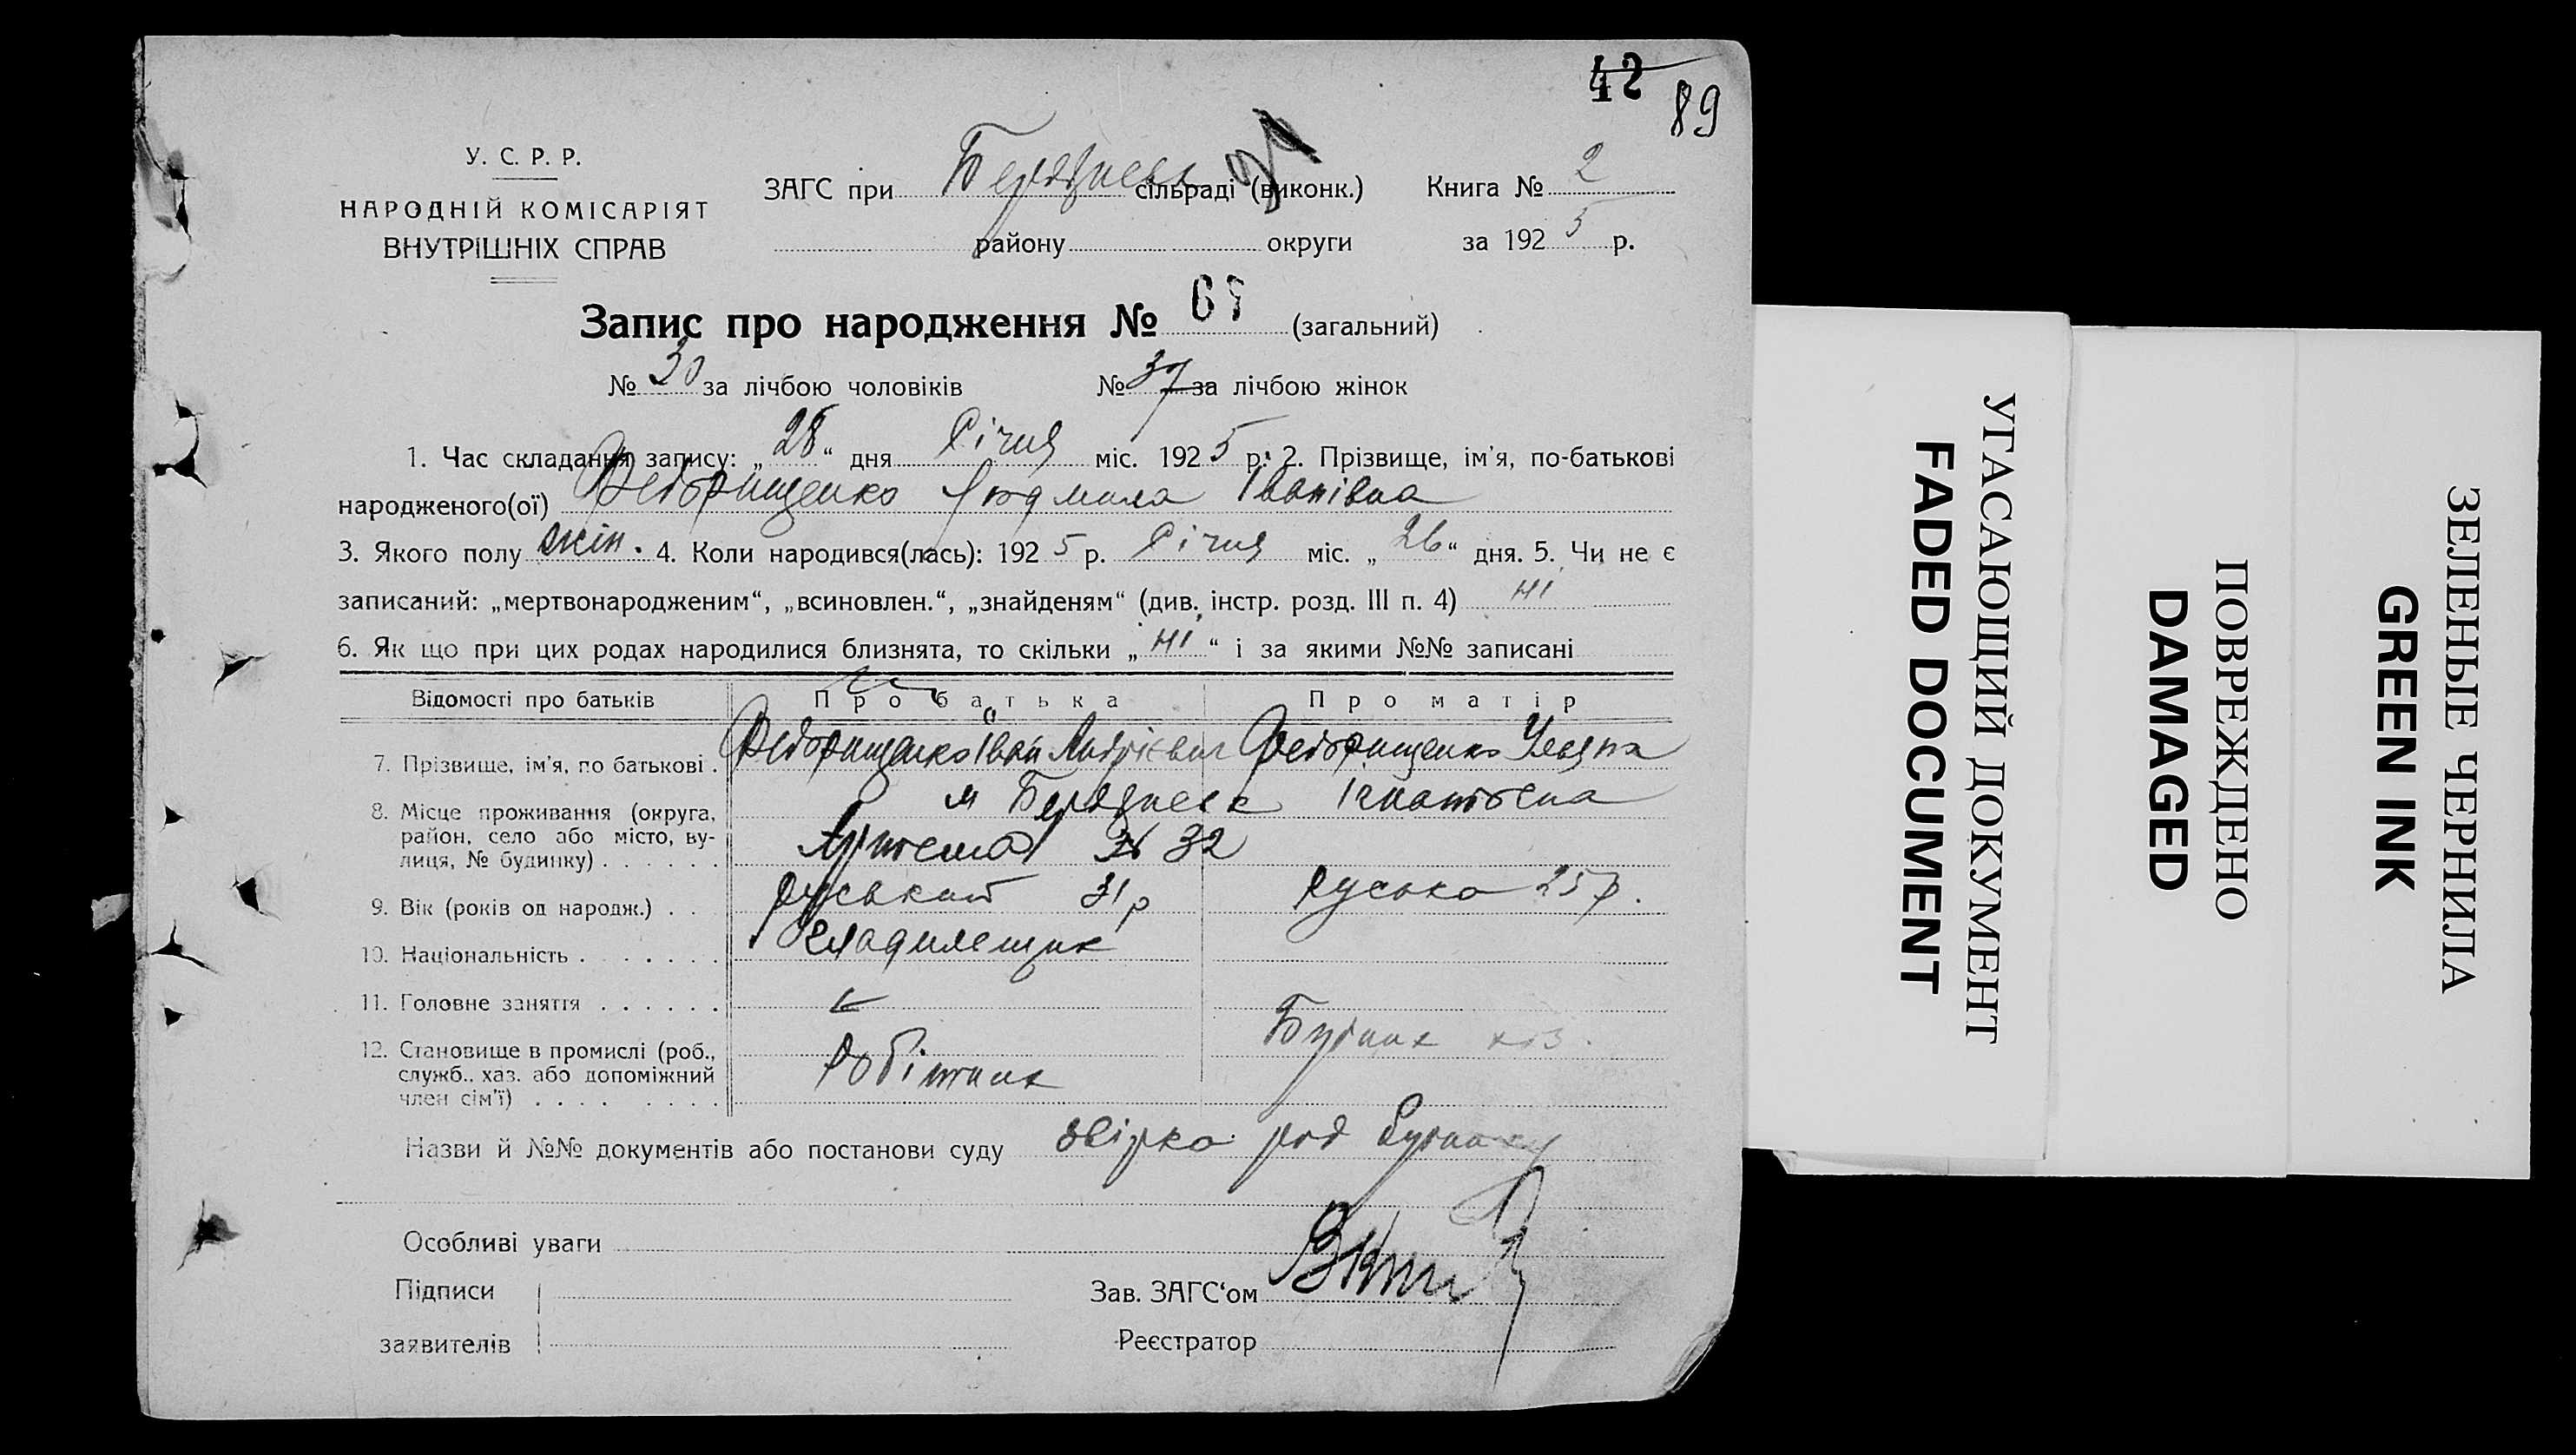 42
89
У. С. Р. Р.
НАРОДНІЙ КОМІСАРІЯТ
ВНУТРІШНІХ СПРАВ
ЗАГС при сільраді (виконк.) Книга № 2
району округи за 1925 р.
Запис про народження № (загальний)
№ 30 за лічбою чоловіків № 37 за лічбою жінок
1. Час складання запису: „28“ дня Січня міс. 1925 р. 2. Прізвище, ім'я, по-батькові
народженого(ої) Федорищенко Людмила Іванівна
3. Якого полу жін. 4. Коли народився(лась): 1925 р. Січня міс. „26“ дня. 5. Чи не є
записаний: „мертвонародженим“, „всиновлен.“, „знайденям“ (див. інстр. розд. III п. 4) ні
6. Як що при цих родах народилися близнята, то скільки „ні“ і за якими №№ записані
Відомості про батьків Про батька Про матір
7. Прізвище, ім'я, по батькові . Федорищенко Іван Андрієвич Федорищенко Уляна
8. Місце проживання (округа, район, село або місто, вулиця, № будинку) . . . . . . м Ігнатівна
Артема № 32
9. Вік (років од народж.) . . руський 31 р руська 25 р.
10. Національність . . . . . .
11. Головне заняття . . . . . .
12. Становище в промислі (роб., служб., хаз. або допоміжний член сім'ї) . . . . . . . . Робітник
Назви й №№ документів або постанови суду
Особливі уваги
Підписи Зав. ЗАГС'ом
заявителів Реєстратор
УГАСАЮЩИЙ ДОКУМЕНТ
FADED DOCUMENT
ПОВРЕЖДЕНО
DAMAGED
ЗЕЛЕНЫЕ ЧЕРНИЛА
GREEN INK